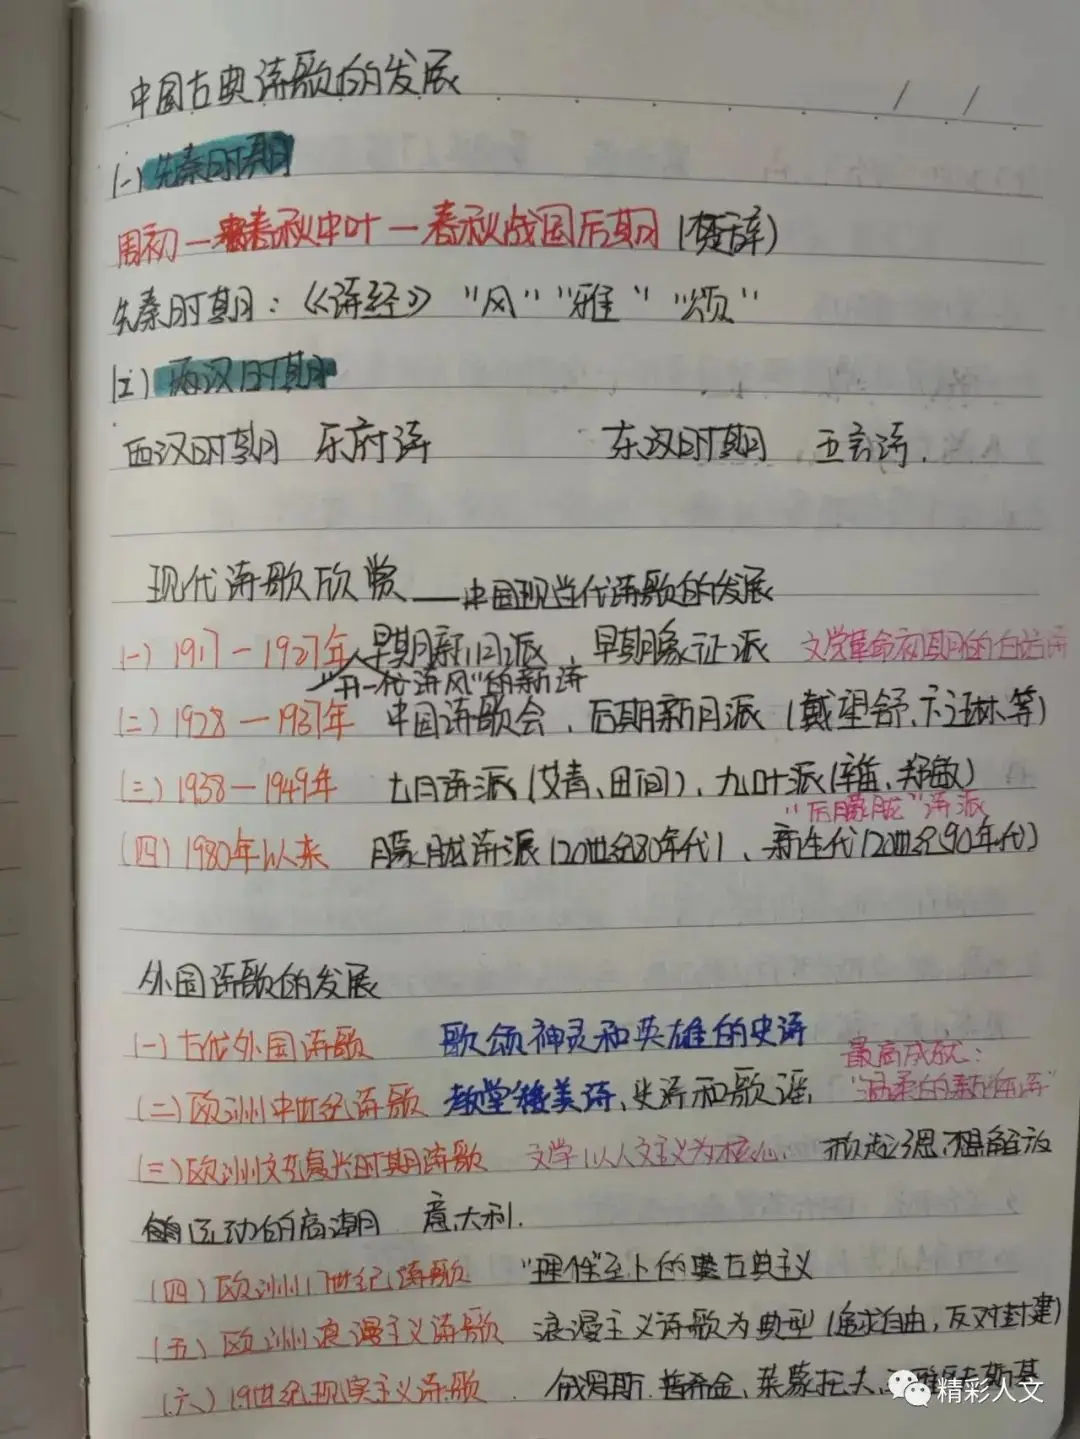 中国古典诗歌的发展
(一) 先秦时期
周初—春秋中叶—春秋战国后期 (楚辞)
先秦时期:《诗经》"风""雅""颂"
(二) 两汉时期
西汉时期 乐府诗 东汉时期 五言诗.
现代诗歌欣赏——中国现当代诗歌的发展
(一) 1917—1927年 早期新月派、早期象征派 文学革命初期的白话诗
"开一代诗风"的新诗
(二) 1928—1937年 中国诗歌会、后期新月派 (戴望舒、卞之琳等)
(三) 1938—1949年 七月诗派 (艾青、田间)、九叶派 (辛笛、郑敏)
"后朦胧"诗派
(四) 1980年以来 朦胧诗派 (20世纪80年代)、新生代 (20世纪90年代)
外国诗歌的发展
(一) 古代外国诗歌 歌颂神灵和英雄的史诗
最高成就:
(二) 欧洲中世纪诗歌 教堂赞美诗、史诗和歌谣, "温柔的新体诗"
(三) 欧洲文艺复兴时期诗歌 文学以人文主义为核心. 掀起思想解放
运动的高潮 意大利.
(四) 欧洲17世纪诗歌 "理性"至上的古典主义
(五) 欧洲浪漫主义诗歌 浪漫主义诗歌为典型 (追求自由,反对封建)
(六) 19世纪现实主义诗歌. 俄罗斯. 普希金、莱蒙托夫、
精彩人文